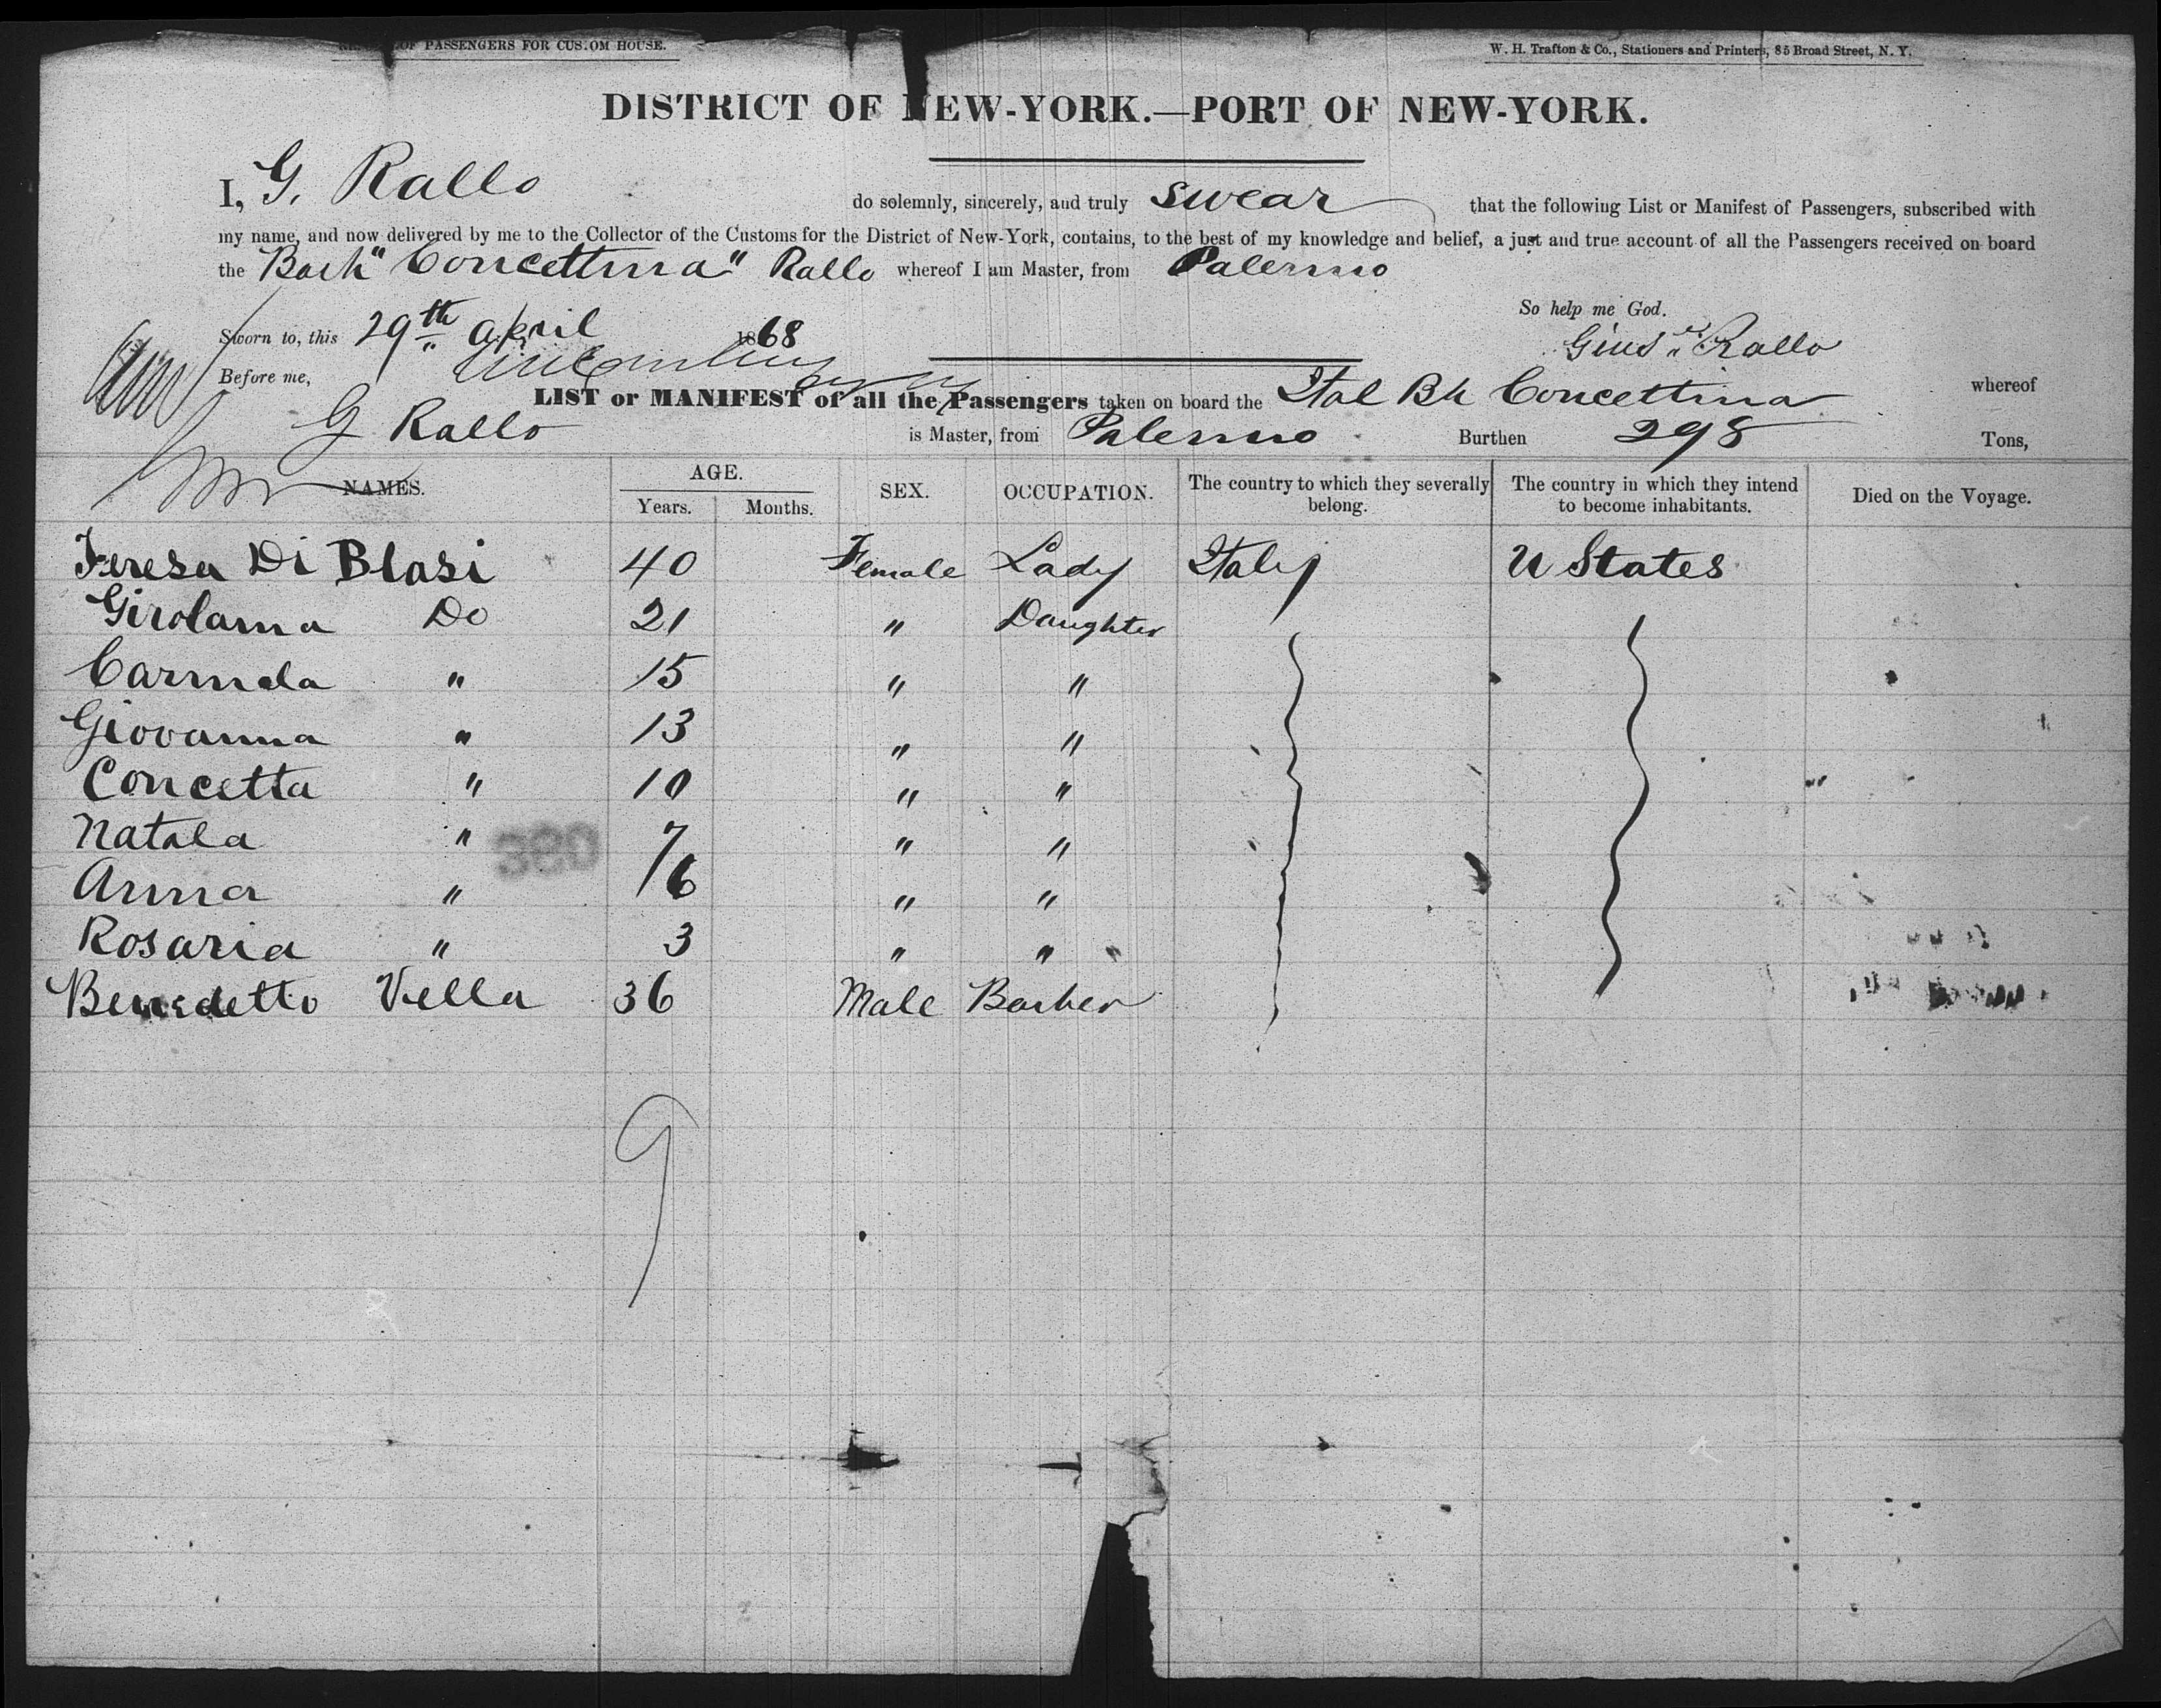 OF PASSENGERS FOR CUSTOM HOUSE.
W. H. Trafton & Co., Stationers and Printers, 85 Broad Street, N. Y.
DISTRICT OF NEW-YORK.—PORT OF NEW-YORK.
I, G. Rallo do solemnly, sincerely, and truly swear that the following List or Manifest of Passengers, subscribed with
my name, and now delivered by me to the Collector of the Customs for the District of New-York, contains, to the best of my knowledge and belief, a just and true account of all the Passengers received on board
the Bark "Concettina" Rallo whereof I am Master, from Palermo
So help me God.
Sworn to, this 29th April 1868
Gius.e Rallo
Before me,
LIST or MANIFEST of all the Passengers taken on board the Ital Bk Concettina whereof
G Rallo is Master, from Palermo Burthen 298 Tons,
NAMES. AGE. Years. Months. SEX. OCCUPATION. The country to which they severally belong. The country in which they intend to become inhabitants. Died on the Voyage.
Teresa Di Blasi 40 Female Lady Italy U States
Girolama Do 21 " Daughter
Carmela " 15 " "
Giovanna " 13 " "
Concetta " 10 " "
Natala " 7 " "
Anna " 6 " "
Rosaria " 3 " "
Benedetto Vella 36 Male Barber
9